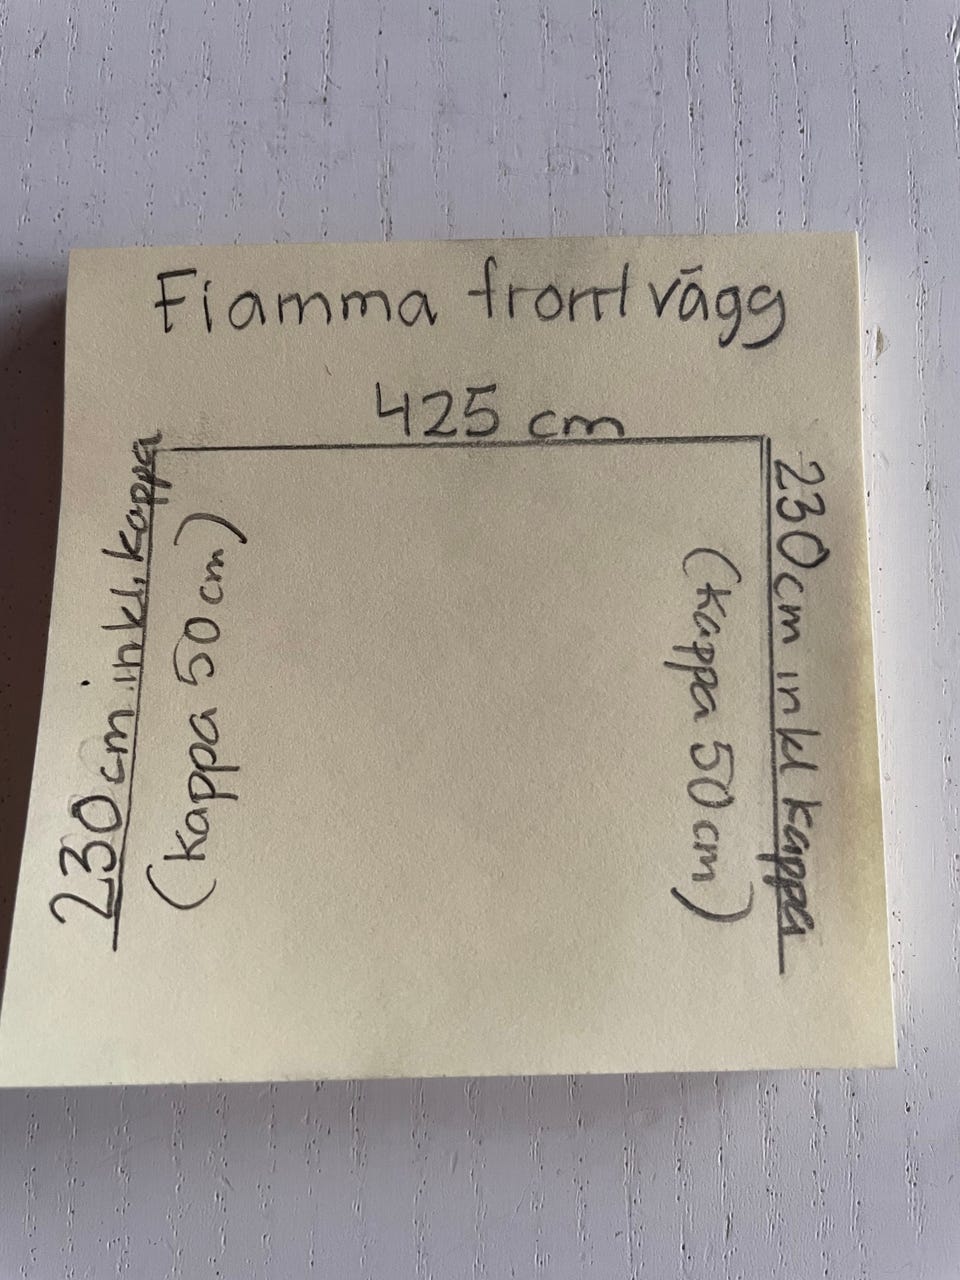 Fiamma frontvägg
425 cm
230 cm inkl. kappa
(kappa 50 cm)
(kappa 50 cm)
230 cm inkl kappa